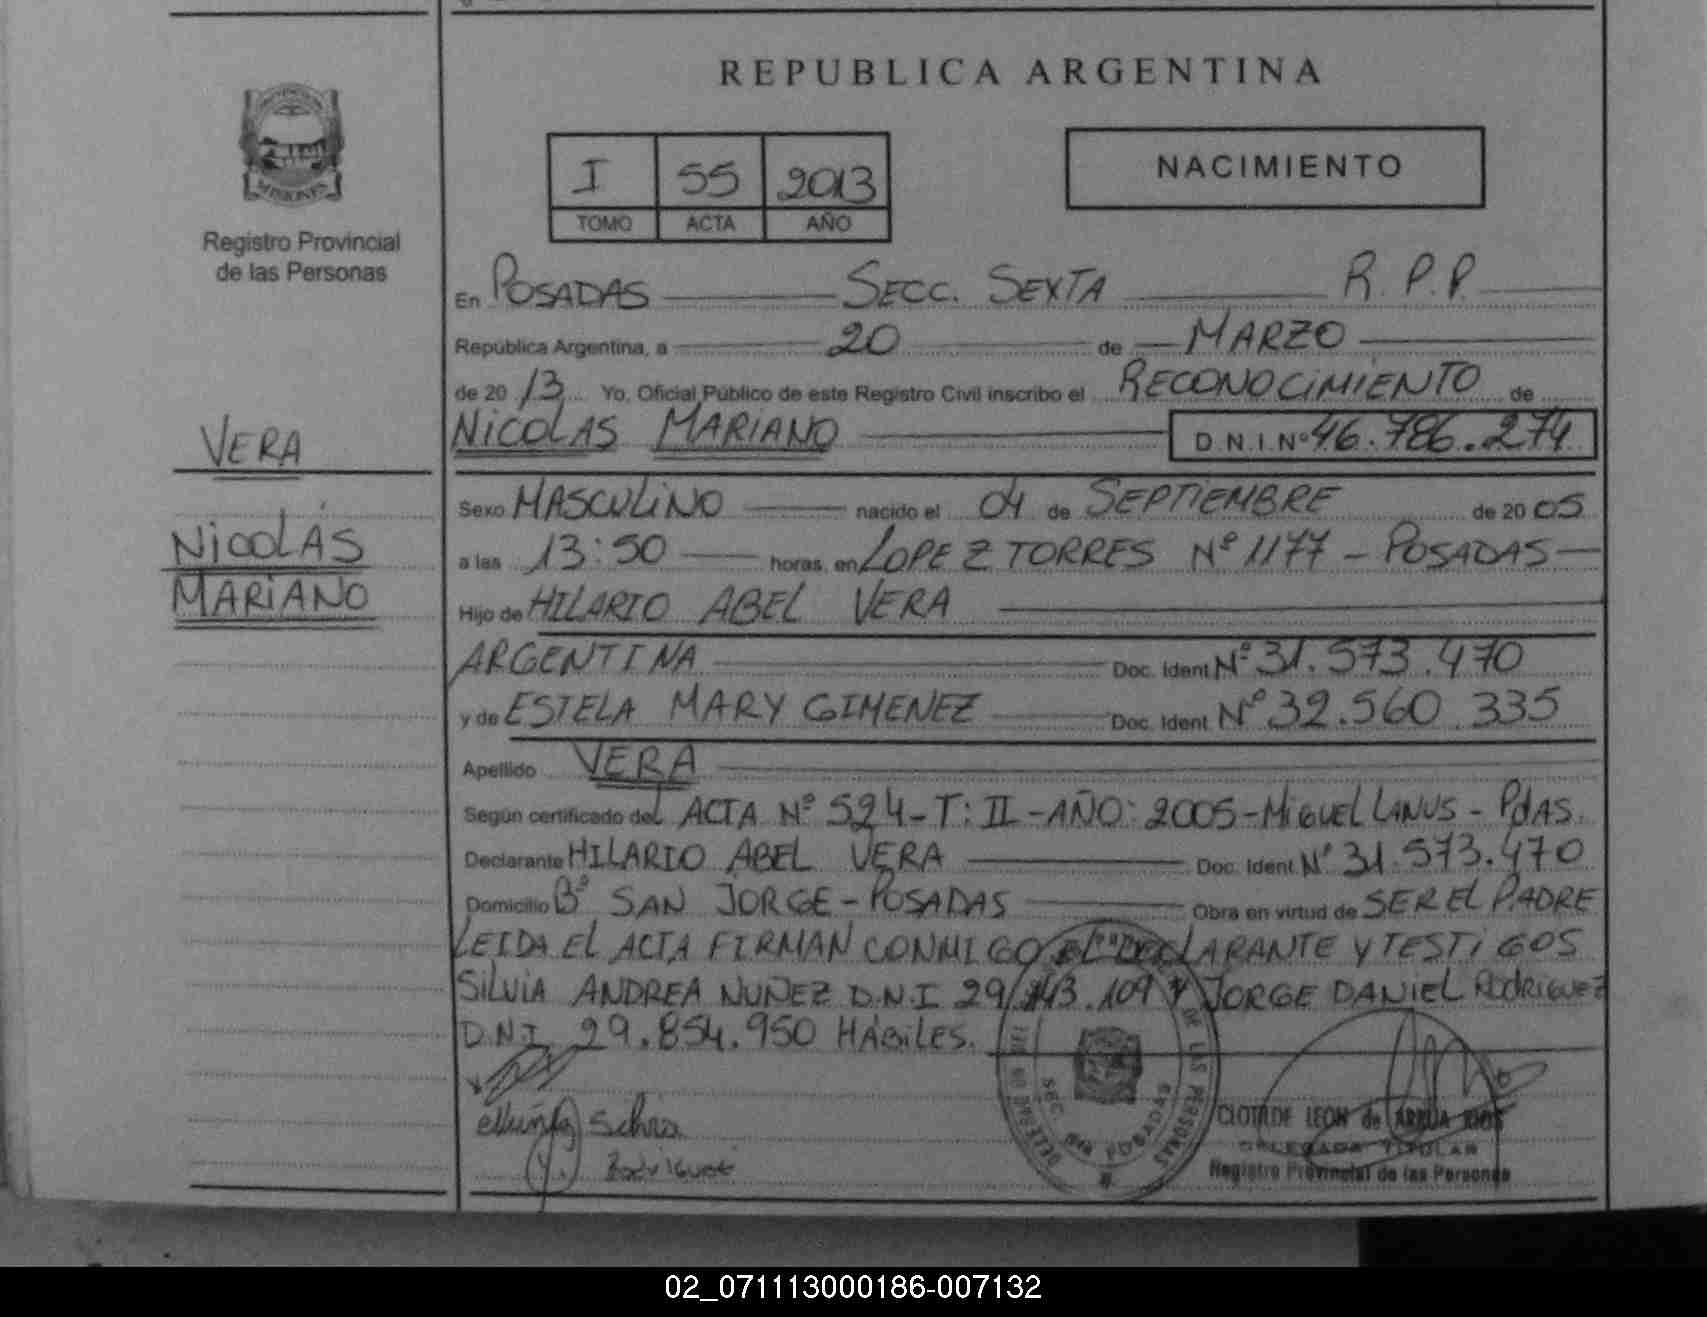 REPUBLICA ARGENTINA
MISIONES
Registro Provincial
de las Personas
I 55 2013
TOMO ACTA AÑO
NACIMIENTO
En POSADAS SECC. SEXTA R.P.P.
República Argentina, a 20 de MARZO
de 2013 Yo, Oficial Público de este Registro Civil inscribo el RECONOCIMIENTO de
NICOLAS MARIANO D.N.I.Nº 46.786.274
VERA
NICOLÁS
MARIANO
Sexo MASCULINO nacido el 04 de SEPTIEMBRE de 2005
a las 13:50 horas, en LOPEZ TORRES Nº 1177 - POSADAS
Hijo de HILARIO ABEL VERA
ARGENTINA Doc. Ident. Nº 31.573.470
y de ESTELA MARY GIMENEZ Doc. Ident. Nº 32.560.335
Apellido VERA
Según certificado del ACTA Nº 524-T: II-AÑO: 2005-MIGUEL LANUS - PdAS.
Declarante HILARIO ABEL VERA Doc. Ident. Nº 31.573.470
Domicilio Bº SAN JORGE - POSADAS Obra en virtud de SER EL PADRE
LEIDA EL ACTA FIRMAN CONMIGO EL DECLARANTE Y TESTIGOS
SILVIA ANDREA NUÑEZ D.N.I 29 109 Y JORGE DANIEL RODRIGUEZ
D.N.I 29.854.950 HÁBILES.
Silvia
Rodriguez
DE LAS PERSONAS
SEC 6ta POSADAS
CLOTILDE LEON de ARRUA RIOS
DELEGADA TITULAR
Registro Provincial de las Personas
02_071113000186-007132